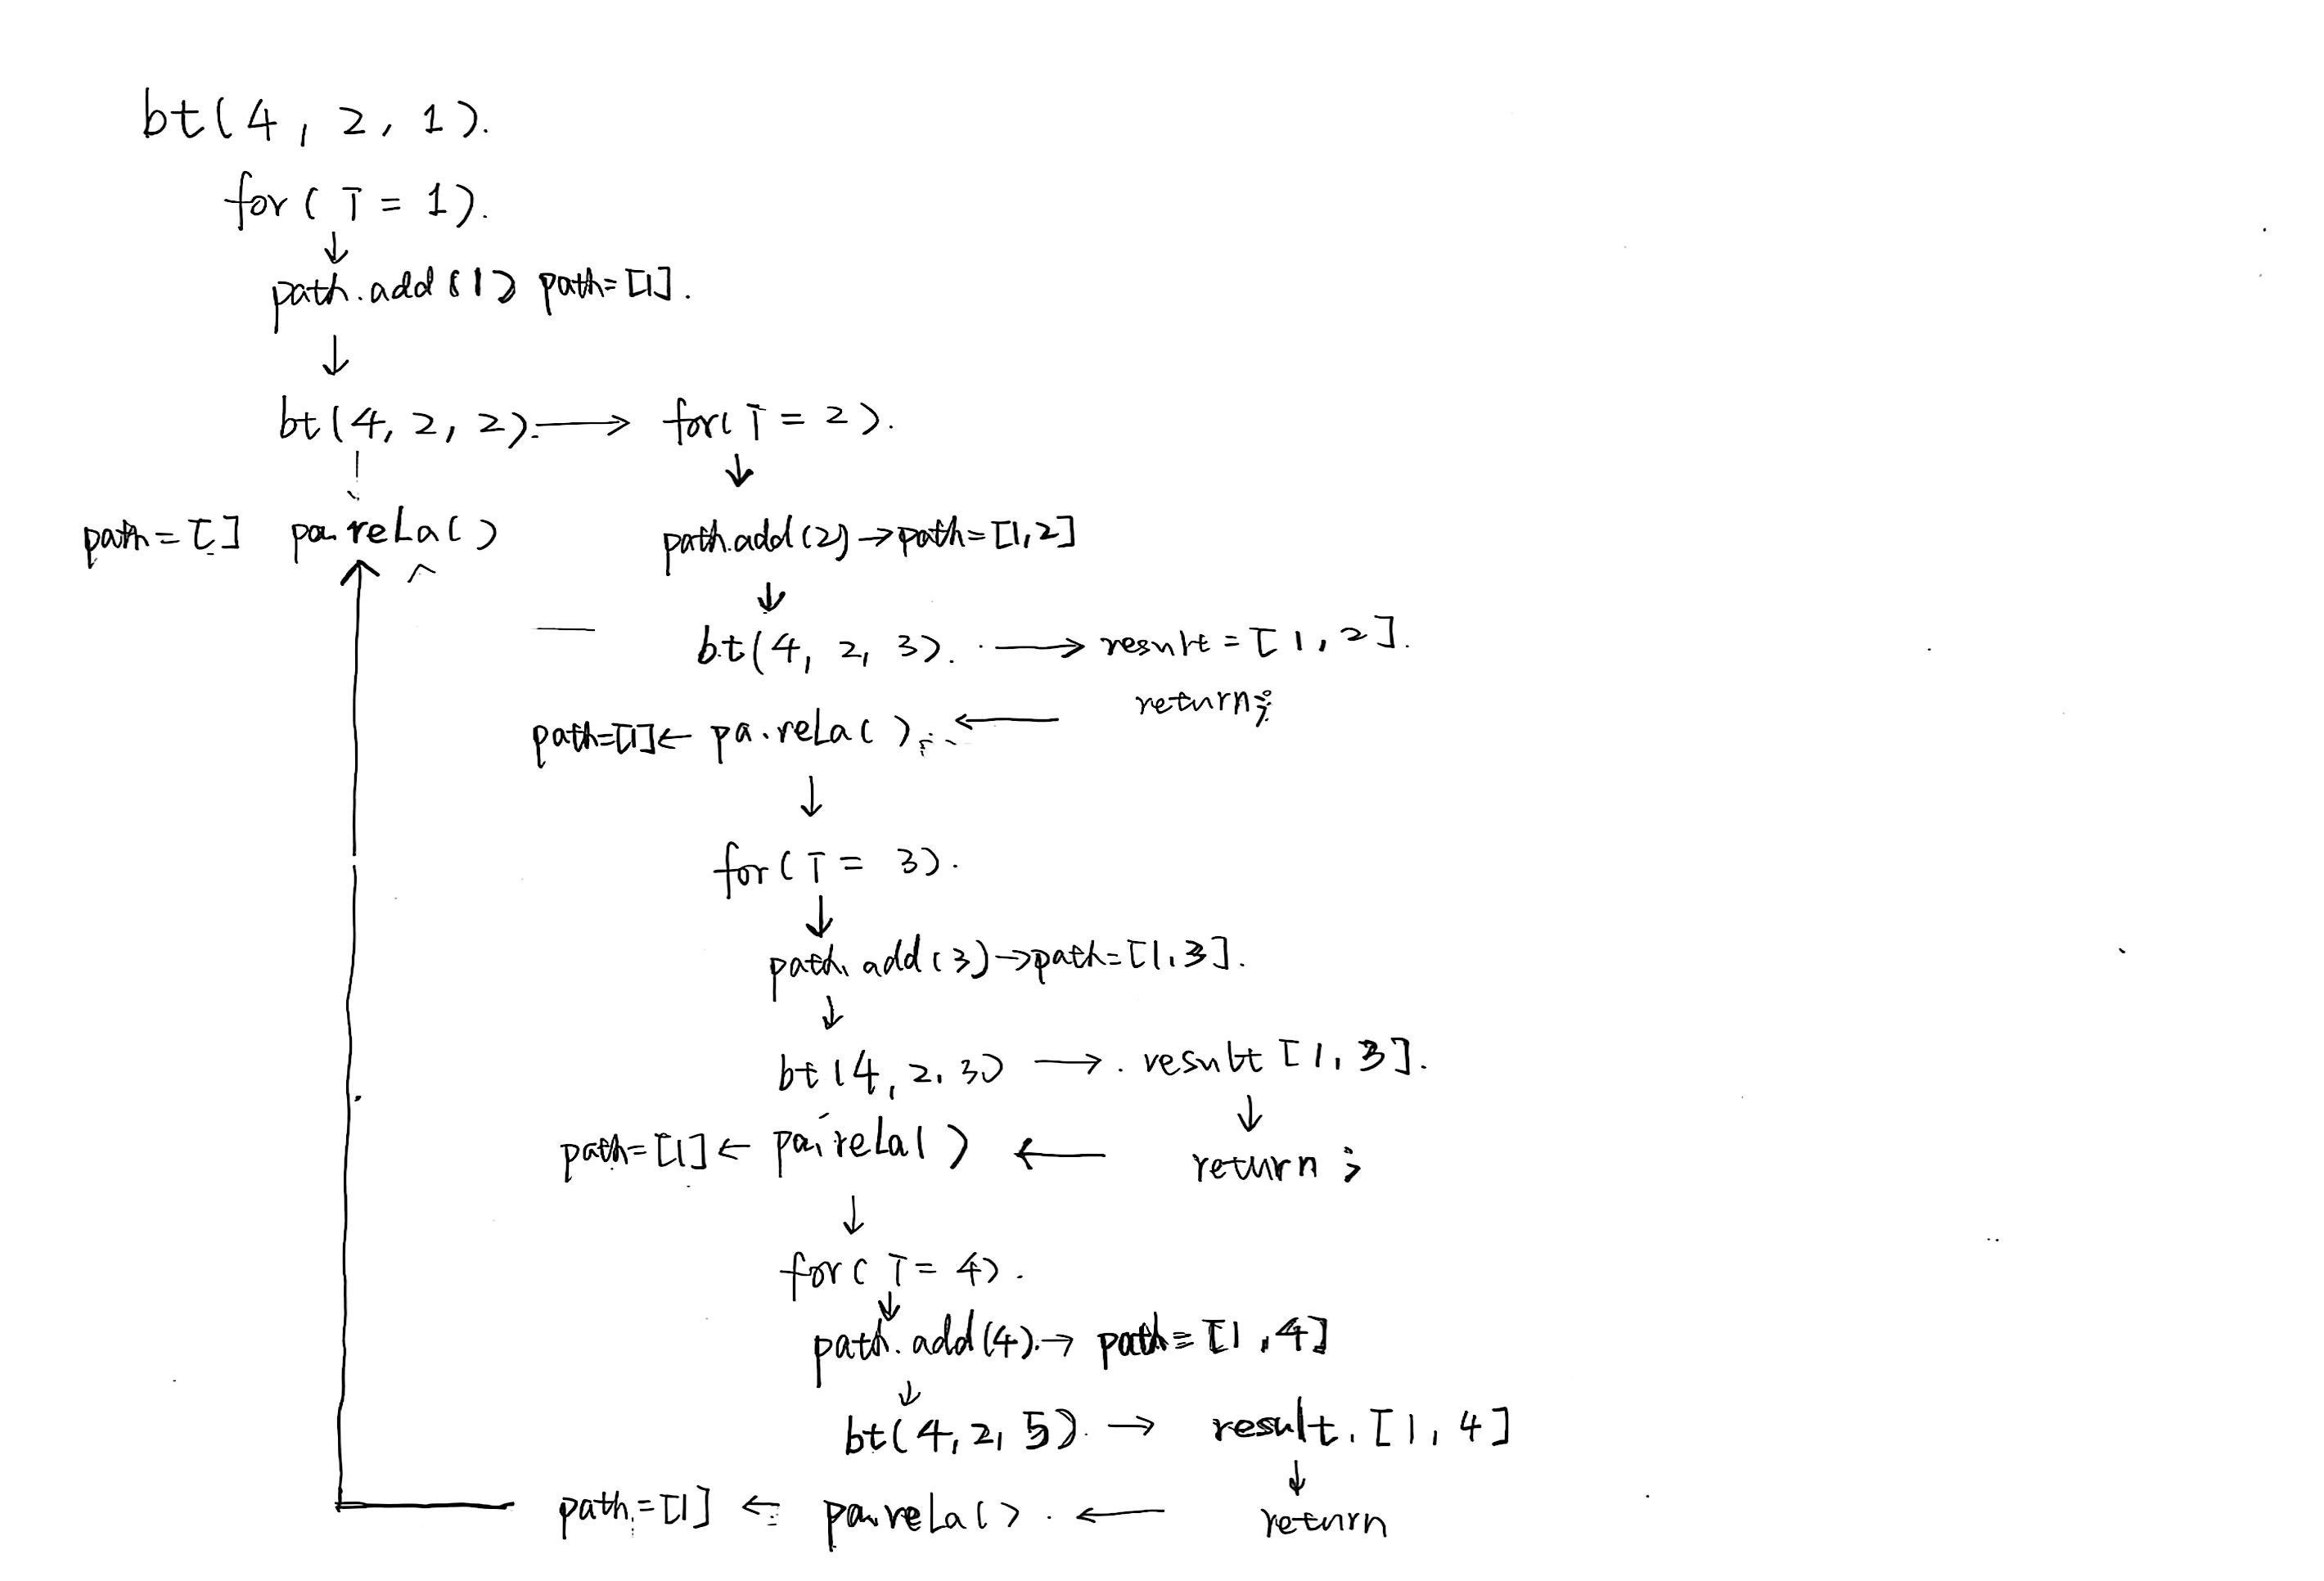 bt(4, 2, 1).
for( i = 1).
↓
path.add(1) path=[1].
↓
bt(4, 2, 2). → for( i = 2).
↓
path=[] pa.reLa()
path.add(2) → path=[1,2]
↓
bt(4, 2, 3). → result = [1, 2].
return;
path=[1] ← pa.reLa(). ←
↓
for( i = 3).
↓
path.add(3) → path=[1,3].
↓
bt(4, 2, 3) → result [1, 3].
↓
path=[1] ← pa.reLa() ← return ;
↓
for( i = 4).
↓
path.add(4). → path=[1,4]
↓
bt(4,2,5). → result. [1, 4]
↓
path=[1] ← pa.reLa() ← return